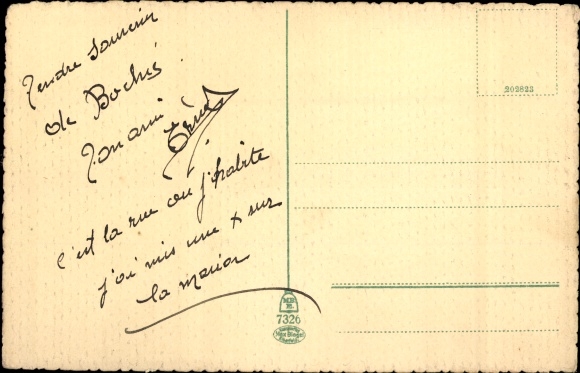 Tendre souvenir
de Bochis
Ton ami
c'est la rue où j'habite
j'ai mis une x sur
la maison
202823
7326